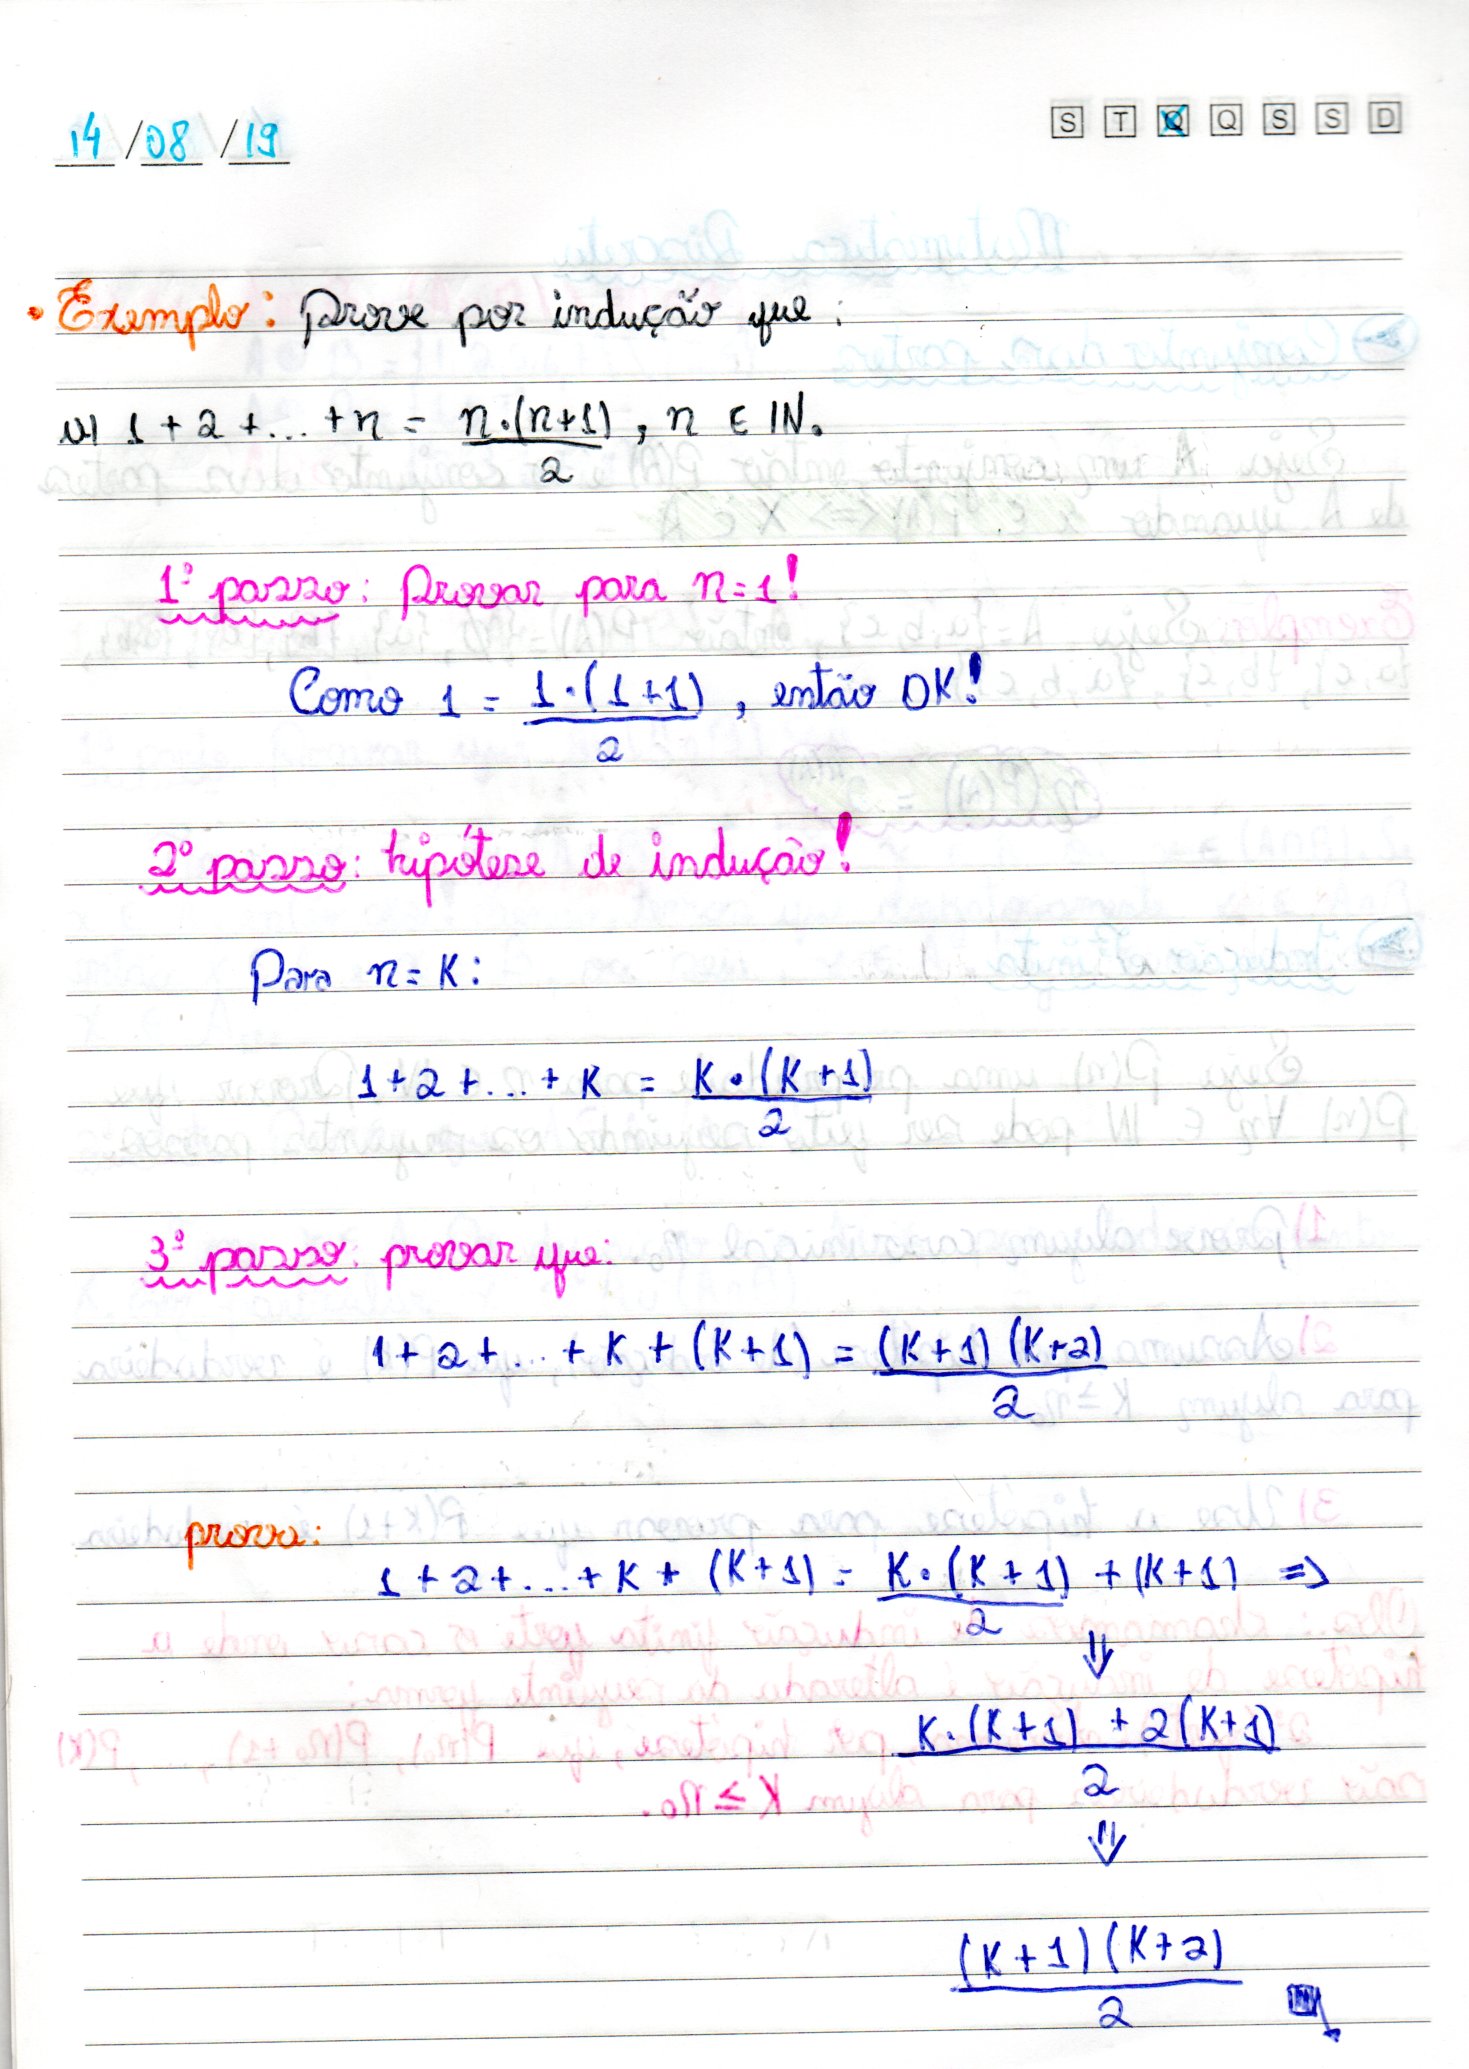 14/08/19
S T Q Q S S D
• Exemplo: Prove por indução que:
a) 1 + 2 + ... + n = n·(n+1)/2, n ∈ IN.
1º passo: Provar para n=1!
Como 1 = 1·(1+1)/2, então OK!
2º passo: hipótese de indução!
Para n=K:
1+2+...+K = K·(K+1)/2
3º passo: provar que:
1+2+...+K+(K+1) = (K+1)(K+2)/2
prova:
1+2+...+K+(K+1) = K·(K+1)/2 + (K+1) ⇒
⇓
K·(K+1) + 2(K+1)/2
⇓
(K+1)(K+2)/2